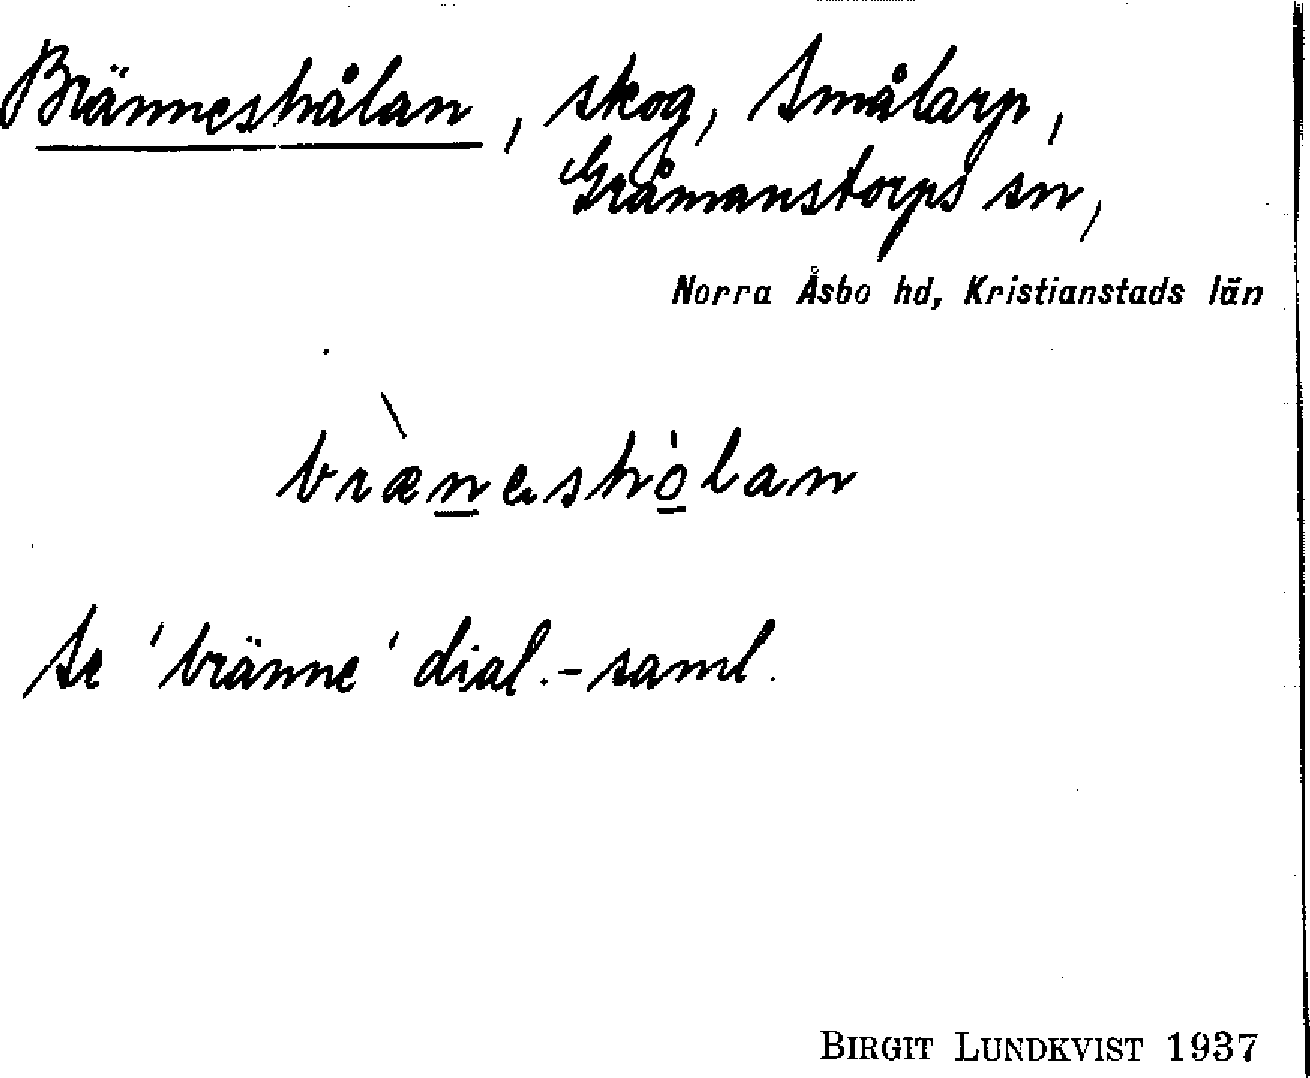 Bränneshålan, skog, Smålarp,
Gråmanstorps sn,
Norra Åsbo hd, Kristianstads län
bræ̀neshò̱lan
Se 'bränne' dial.-saml.
BIRGIT LUNDKVIST 1937